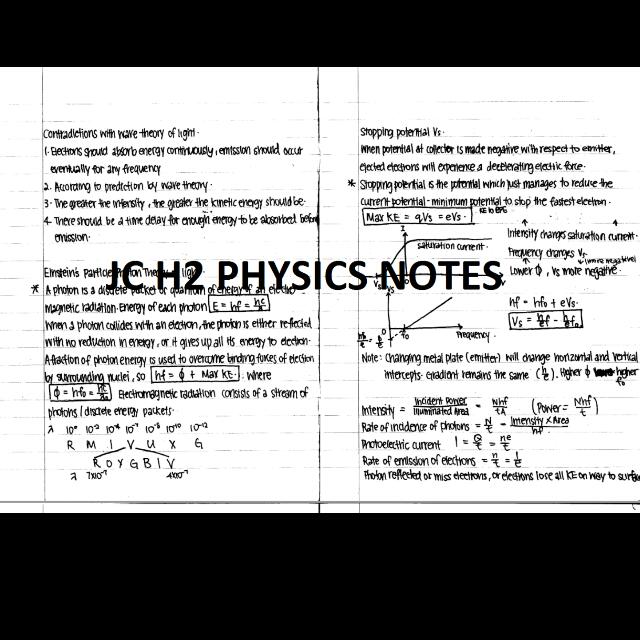 Contradictions with wave theory of light.
1. Electrons should absorb energy continuously, emission should occur
eventually for any frequency
2. According to prediction by wave theory.
3. The greater the intensity, the greater the kinetic energy should be.
4. There should be a time delay for enough energy to be absorbed before
emission.
Einstein's Particle/Photon Theory of light
* A photon is a discrete packet or quantum of energy of an electro-
magnetic radiation. Energy of each photon E = hf = hc/λ
When a photon collides with an electron, the photon is either reflected
with no reduction in energy, or it gives up all its energy to electron.
A fraction of photon energy is used to overcome binding forces of electron
by surrounding nuclei, so hf = ϕ + Max KE. Where
ϕ = hf₀ = hc/λ₀ Electromagnetic radiation consists of a stream of
photons/discrete energy packets.
R M I V U X G
R O Y G B I V
JC H2 PHYSICS NOTES
Stopping potential Vs.
When potential at collector is made negative with respect to emitter,
ejected electrons will experience a decelerating electric force.
* Stopping potential is the potential which just manages to reduce the
current potential - minimum potential to stop the fastest electron.
Max KE = qVs = eVs.
I
saturation current.
Intensity changes saturation current.
Frequency changes Vs.
(more negative)
Lower ϕ, Vs more negative.
Vs
hf = hf₀ + eVs
Vs = hf/e - hf₀/e
f₀ Frequency.
Note: Changing metal plate (emitter) will change horizontal and vertical
intercepts. Gradient remains the same (h/e). Higher ϕ higher f₀
Intensity = Incident Power/Illuminated Area = Nhf/tA (Power = Nhf/t)
Rate of incidence of photons = N/t = Intensity × Area/hf
Photoelectric current I = Q/t = ne/t
Rate of emission of electrons = n/t = I/e
Photon reflected or miss electrons, or electrons lose all KE on way to surface